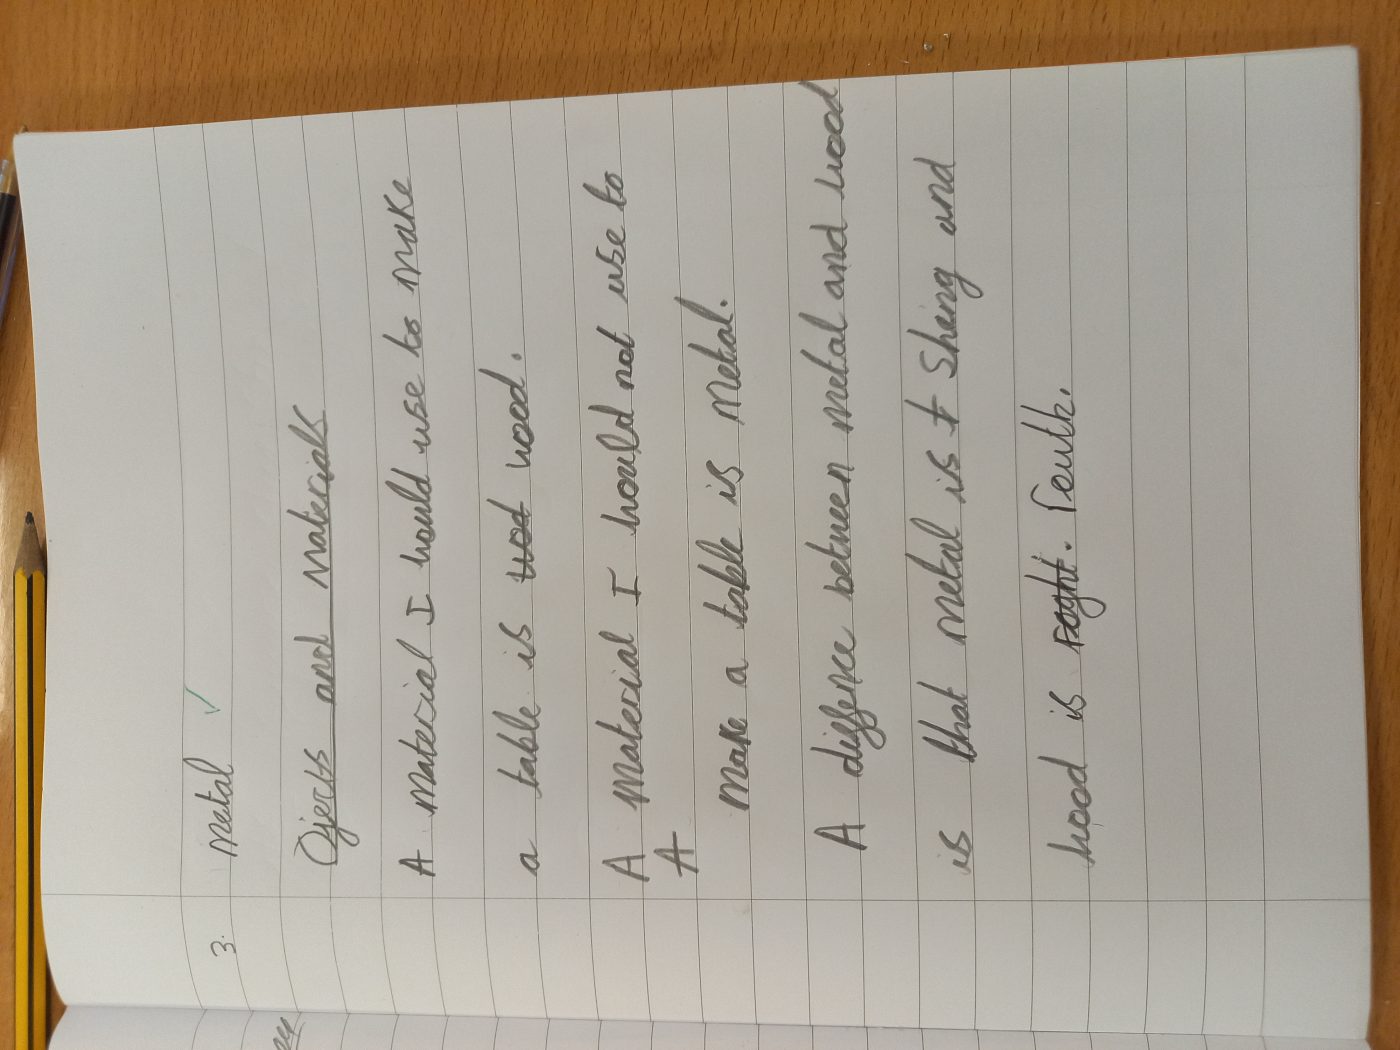 3. Metal ✓
Ojects and materials
A material I would use to make
a table is wod wood.
A material I would not use to
A
make a table is metal.
A diffence between metal and wood
is that metal is t Shaing and
wood is roght. routh.